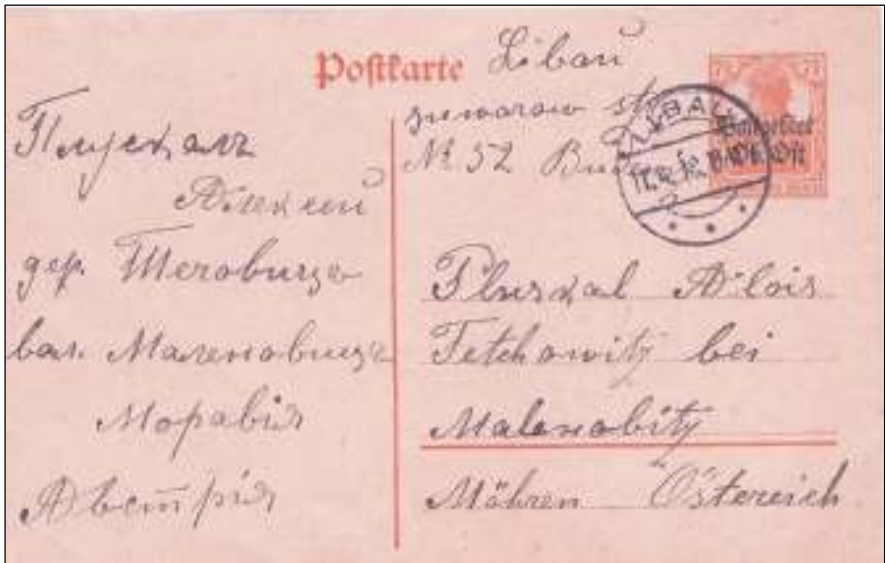 Postkarte Libau
suworow str
№ 52
LIBAU
Postgebiet
Ob. Ost
Плускалъ
Алексей
дер. Теховице
вол. Маленовице
Моравія
Австрія
Pluskal Alois
Tetchowitz bei
Malenobitz
Mähren Östereich